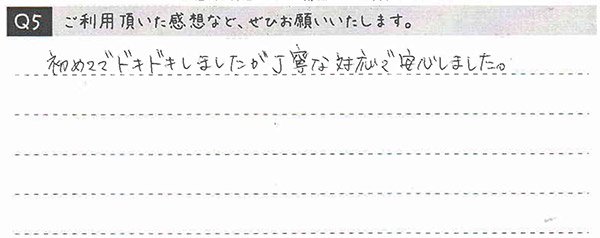 Q5 ご利用頂いた感想など、ぜひお願いいたします。
初めてでドキドキしましたが丁寧な対応で安心しました。